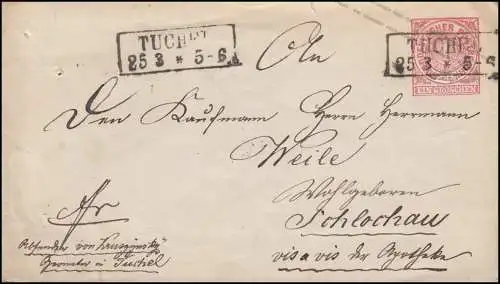 TUCHEL
25 3 * 5-6 N
TUCHEL
25 3 * 5-
EIN GROSCHEN
An
Den Kaufmann Herrn Herrmann
Weile
Wohlgeboren
Schlochau
vis a vis der Apotheke
fr
Absender von Kruszynsky
Geometer in Tuchel